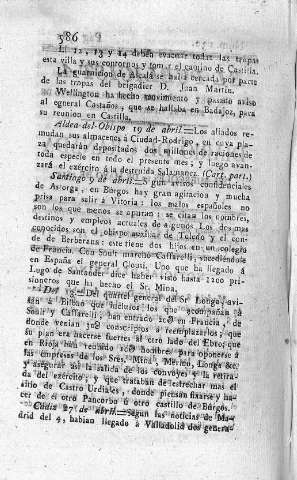 386
El 12, 13 y 14 deben evacuar todas las tropas
esta villa y sus contornos y tomar el camino de Castilla.
La guarnicion de Alcalá se halla cercada por parte
de las tropas del brigadier D. Juan Martin.
Wellington ha hecho movimiento y pasado aviso
al general Castaños, que se hallaba en Badajoz, para
su reunion en Castilla.
Aldea-del-Obispo 19 de abril.=Los aliados re-
mudan sus almacenes á Ciudad-Rodrigo, en cuya pla-
za quedarán depositados dos millones de raciones de
toda especie en todo el presente mes; y luego avan-
zará el exército á la destruida Salamanca. (Cart. part.)
Santiago 9 de abril.=Segun avisos confidenciales
de Astorga, en Búrgos hay gran agitacion y mucha
prisa para salir á Vitoria: los malos españoles no
son los que menos se apuran: se citan los nombres,
destinos y empleos actuales de algunos. Los dos mas
conocidos son el obispo auxiliar de Toledo y el con-
de de Berberana: este tiene dos hijos en un colegio
de Francia. Con Soult marchó Caffarelli, sucediéndole
en España el general Clousel. Uno que ha llegado á
Lugo de Santander dice haber visto hasta 1200 pri-
sioneros que ha hecho el Sr. Mina.
Del quartel general del Sr. Longa avi-
san á Bilbao que idénticos los que acompañan á
Soult y Caffarelli, han entrado en Francia, de
donde venian conscriptos á reemplazarlos; que
su plan era hacerse fuertes al otro lado del Ebro; que
en Rioja han reunido hombres para oponerse á
las empresas de los Sres. Mina, Merino, Longa &c.
y asegurar así la salida de los convoyes y la retira-
da del exército; y que trataban de estrechar mas el
sitio de Castro Urdiales, donde piensan fixarse y ha-
cer de él otro Pancorbo ú otro castillo de Búrgos.
Cádiz 27 de abril.=Segun las noticias de Ma-
drid del 4, habian llegado á Valladolid dos genera-